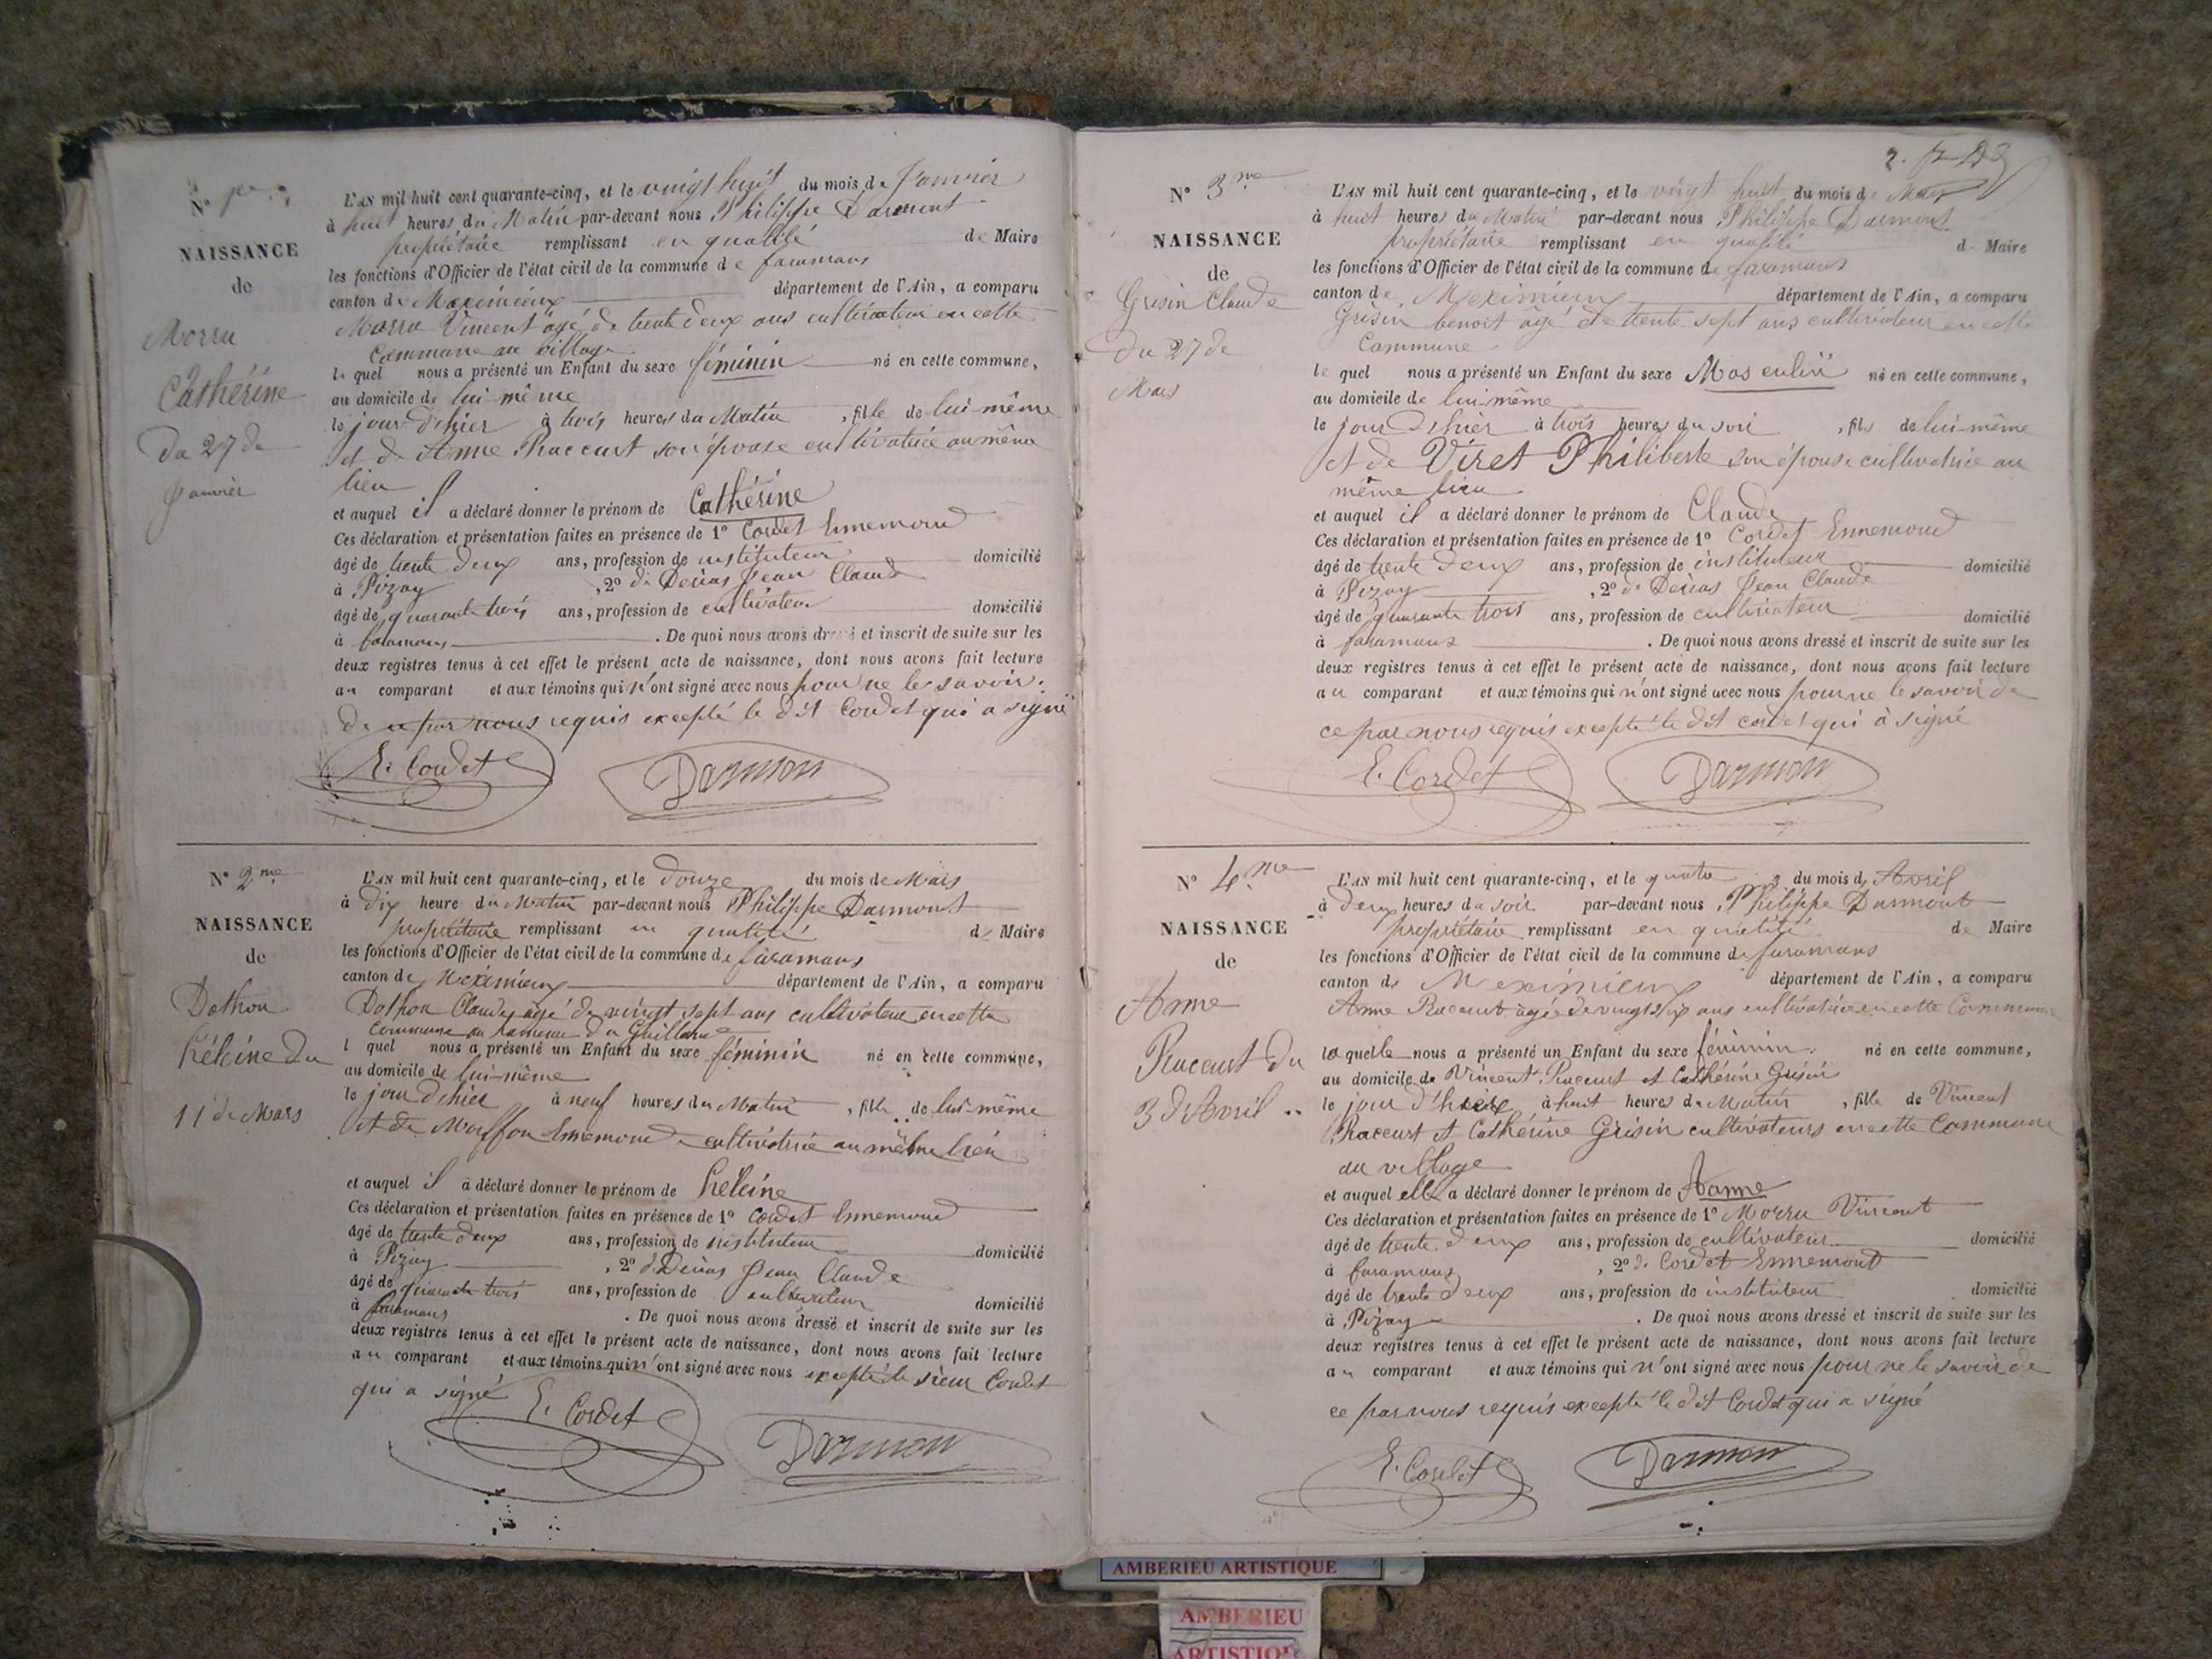 N° 1er
NAISSANCE
de
Morru
Cathérine
Du 27 de
Janvier
L'AN mil huit cent quarante-cinq, et le vingt huit du mois de Janvier
à huit heures du Matin par-devant nous Philippe Darmont
propriétaire remplissant en qualité de Maire
les fonctions d'Officier de l'état civil de la commune de faramans
canton de Meximieux département de l'Ain, a comparu
Morru Vincent âgé de trente deux ans cultivateur en cette
Commune au village
le quel nous a présenté un Enfant du sexe féminin né en cette commune,
au domicile de lui-même
le jour d'hier à trois heures du Matin , fille de lui-même
et de Anne Raccurt son épouse cultivatrice au même
lieu
et auquel il a déclaré donner le prénom de Cathérine
Ces déclaration et présentation faites en présence de 1° Cordet Ennemond
âgé de trente deux ans, profession de instituteur domicilié
à Pizay , 2° de Derias Jean Claude
âgé de quarante trois ans, profession de cultivateur domicilié
à faramans . De quoi nous avons dressé et inscrit de suite sur les
deux registres tenus à cet effet le présent acte de naissance, dont nous avons fait lecture
au comparant et aux témoins qui n'ont signé avec nous pour ne le savoir.
de ce par nous requis excepté le dit Cordet qui a signé
E. Cordet Darmon
N° 2me
NAISSANCE
de
Dothon
héleine du
11 de Mars
L'AN mil huit cent quarante-cinq, et le douze du mois de Mars
à dix heure du Matin par-devant nous Philippe Darmont
propriétaire remplissant en qualité de Maire
les fonctions d'Officier de l'état civil de la commune de faramans
canton de Meximieux département de l'Ain, a comparu
Dothon Claude agé de vingt sept ans cultivateur en cette
Commune au hameau du
l quel nous a présenté un Enfant du sexe féminin né en cette commune,
au domicile de lui-même
le jour d'hier à neuf heures du Matin , fille de lui-même
et de Moiffon Ennemonde cultivatrice au même lieu
et auquel il a déclaré donner le prénom de heleine
Ces déclaration et présentation faites en présence de 1° Cordet Ennemond
âgé de trente deux ans, profession de instituteur domicilié
à Pizay , 2° de Derias Jean Claude
âgé de quarante trois ans, profession de cultivateur domicilié
à faramans . De quoi nous avons dressé et inscrit de suite sur les
deux registres tenus à cet effet le présent acte de naissance, dont nous avons fait lecture
au comparant et aux témoins qui n'ont signé avec nous excepté le sieur Cordet
qui a signé E. Cordet
Darmon
N° 3me
NAISSANCE
de
Grisin Claude
du 27 de
Mars
L'AN mil huit cent quarante-cinq, et le vingt huit du mois de Mars
à huit heures du Matin par-devant nous Philippe Darmont
propriétaire remplissant en qualité de Maire
les fonctions d'Officier de l'état civil de la commune de faramans
canton de Meximieux département de l'Ain, a comparu
Grisin benoit âgé de trente sept ans cultivateur en cette
Commune
le quel nous a présenté un Enfant du sexe Masculin né en cette commune,
au domicile de lui-même
le jour d'hier à trois heures du soir , fils de lui-même
et de Viret Philiberte son épouse cultivatrice au
même lieu
et auquel il a déclaré donner le prénom de Claude
Ces déclaration et présentation faites en présence de 1° Cordet Ennemond
âgé de trente deux ans, profession de instituteur domicilié
à Pizay , 2° de Derias Jean Claude
âgé de quarante trois ans, profession de cultivateur domicilié
à faramans . De quoi nous avons dressé et inscrit de suite sur les
deux registres tenus à cet effet le présent acte de naissance, dont nous avons fait lecture
au comparant et aux témoins qui n'ont signé avec nous pour ne le savoir de
ce par nous requis excepté le dit cordet qui à signé
E. Cordet Darmon
N° 4me
NAISSANCE
de
Anne
Raccurt du
3 d'Avril
L'AN mil huit cent quarante-cinq, et le quatre du mois d'Avril
à deux heures du soir par-devant nous Philippe Darmont
propriétaire remplissant en qualité de Maire
les fonctions d'Officier de l'état civil de la commune de faramans
canton de Meximieux département de l'Ain, a comparu
Anne Raccurt agée de vingt six ans cultivatrice en cette Commune
la quelle nous a présenté un Enfant du sexe féminin. né en cette commune,
au domicile de Vincent Raccurt et Cathérine Grisin
le jour d'hier à huit heures du Matin , fille de Vincent
Raccurt et Cathérine Grisin cultivateurs en cette Commune
au village
et auquel elle a déclaré donner le prénom de Anne
Ces déclaration et présentation faites en présence de 1° Morru Vincent
âgé de trente deux ans, profession de cultivateur domicilié
à faramans , 2° de Cordet Ennemont
âgé de trente deux ans, profession de instituteur domicilié
à Pizay . De quoi nous avons dressé et inscrit de suite sur les
deux registres tenus à cet effet le présent acte de naissance, dont nous avons fait lecture
au comparant et aux témoins qui n'ont signé avec nous pour ne le savoir de
ce par nous requis excepté le dit Cordet qui a signé
E. Cordet Darmon
AMBERIEU ARTISTIQUE
AMBERIEU
ARTISTIQUE